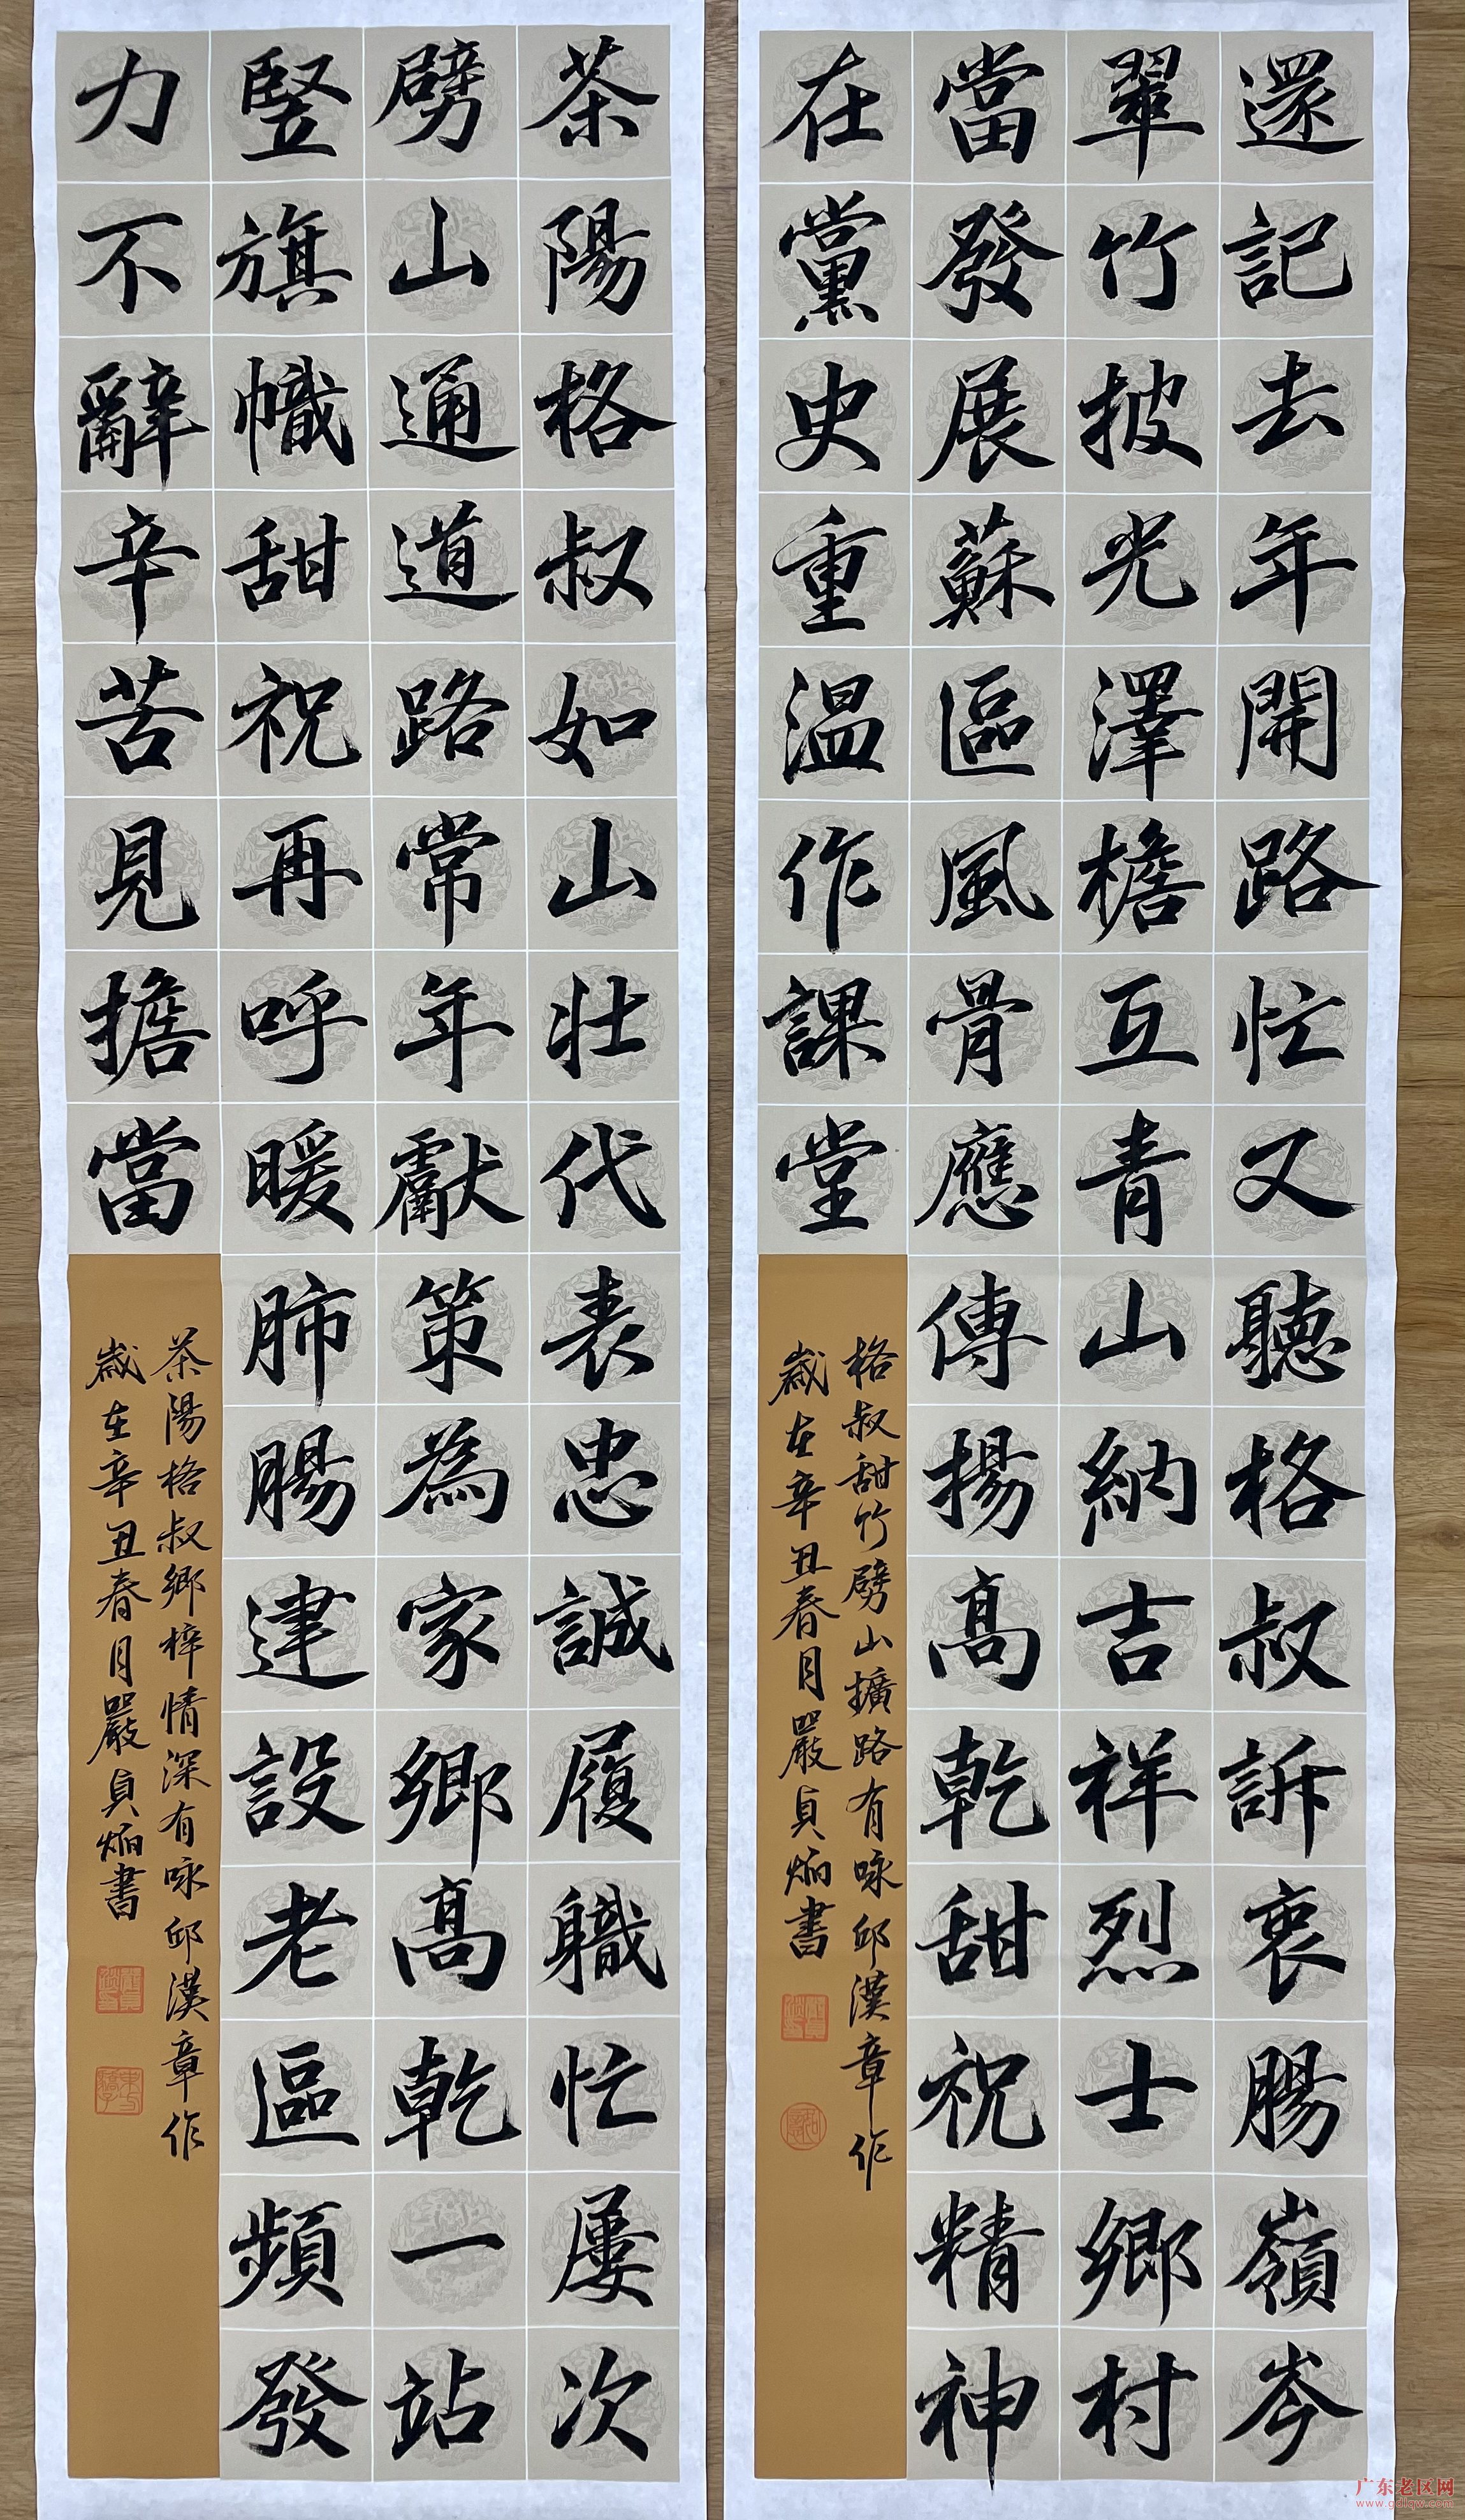 還記去年開路忙又聽格叔訴衷腸嶺岑
翠竹披光澤檐互青山納吉祥烈士鄉村
當發展蘇區風骨應傳揚高乾甜祝精神
在黨史重温作課堂
格叔甜竹劈山擴路有咏邱漢章作
歲在辛丑春月嚴貞炳書
茶陽格叔如山壯代表忠誠履職忙屢次
劈山通道路常年獻策為家鄉高乾一站
竪旗幟甜祝再呼暖肺腸建設老區頻發
力不辭辛苦見擔當
茶陽格叔鄉梓情深有咏邱漢章作
歲在辛丑春月嚴貞炳書
广东老区网
www.gdlqw.com